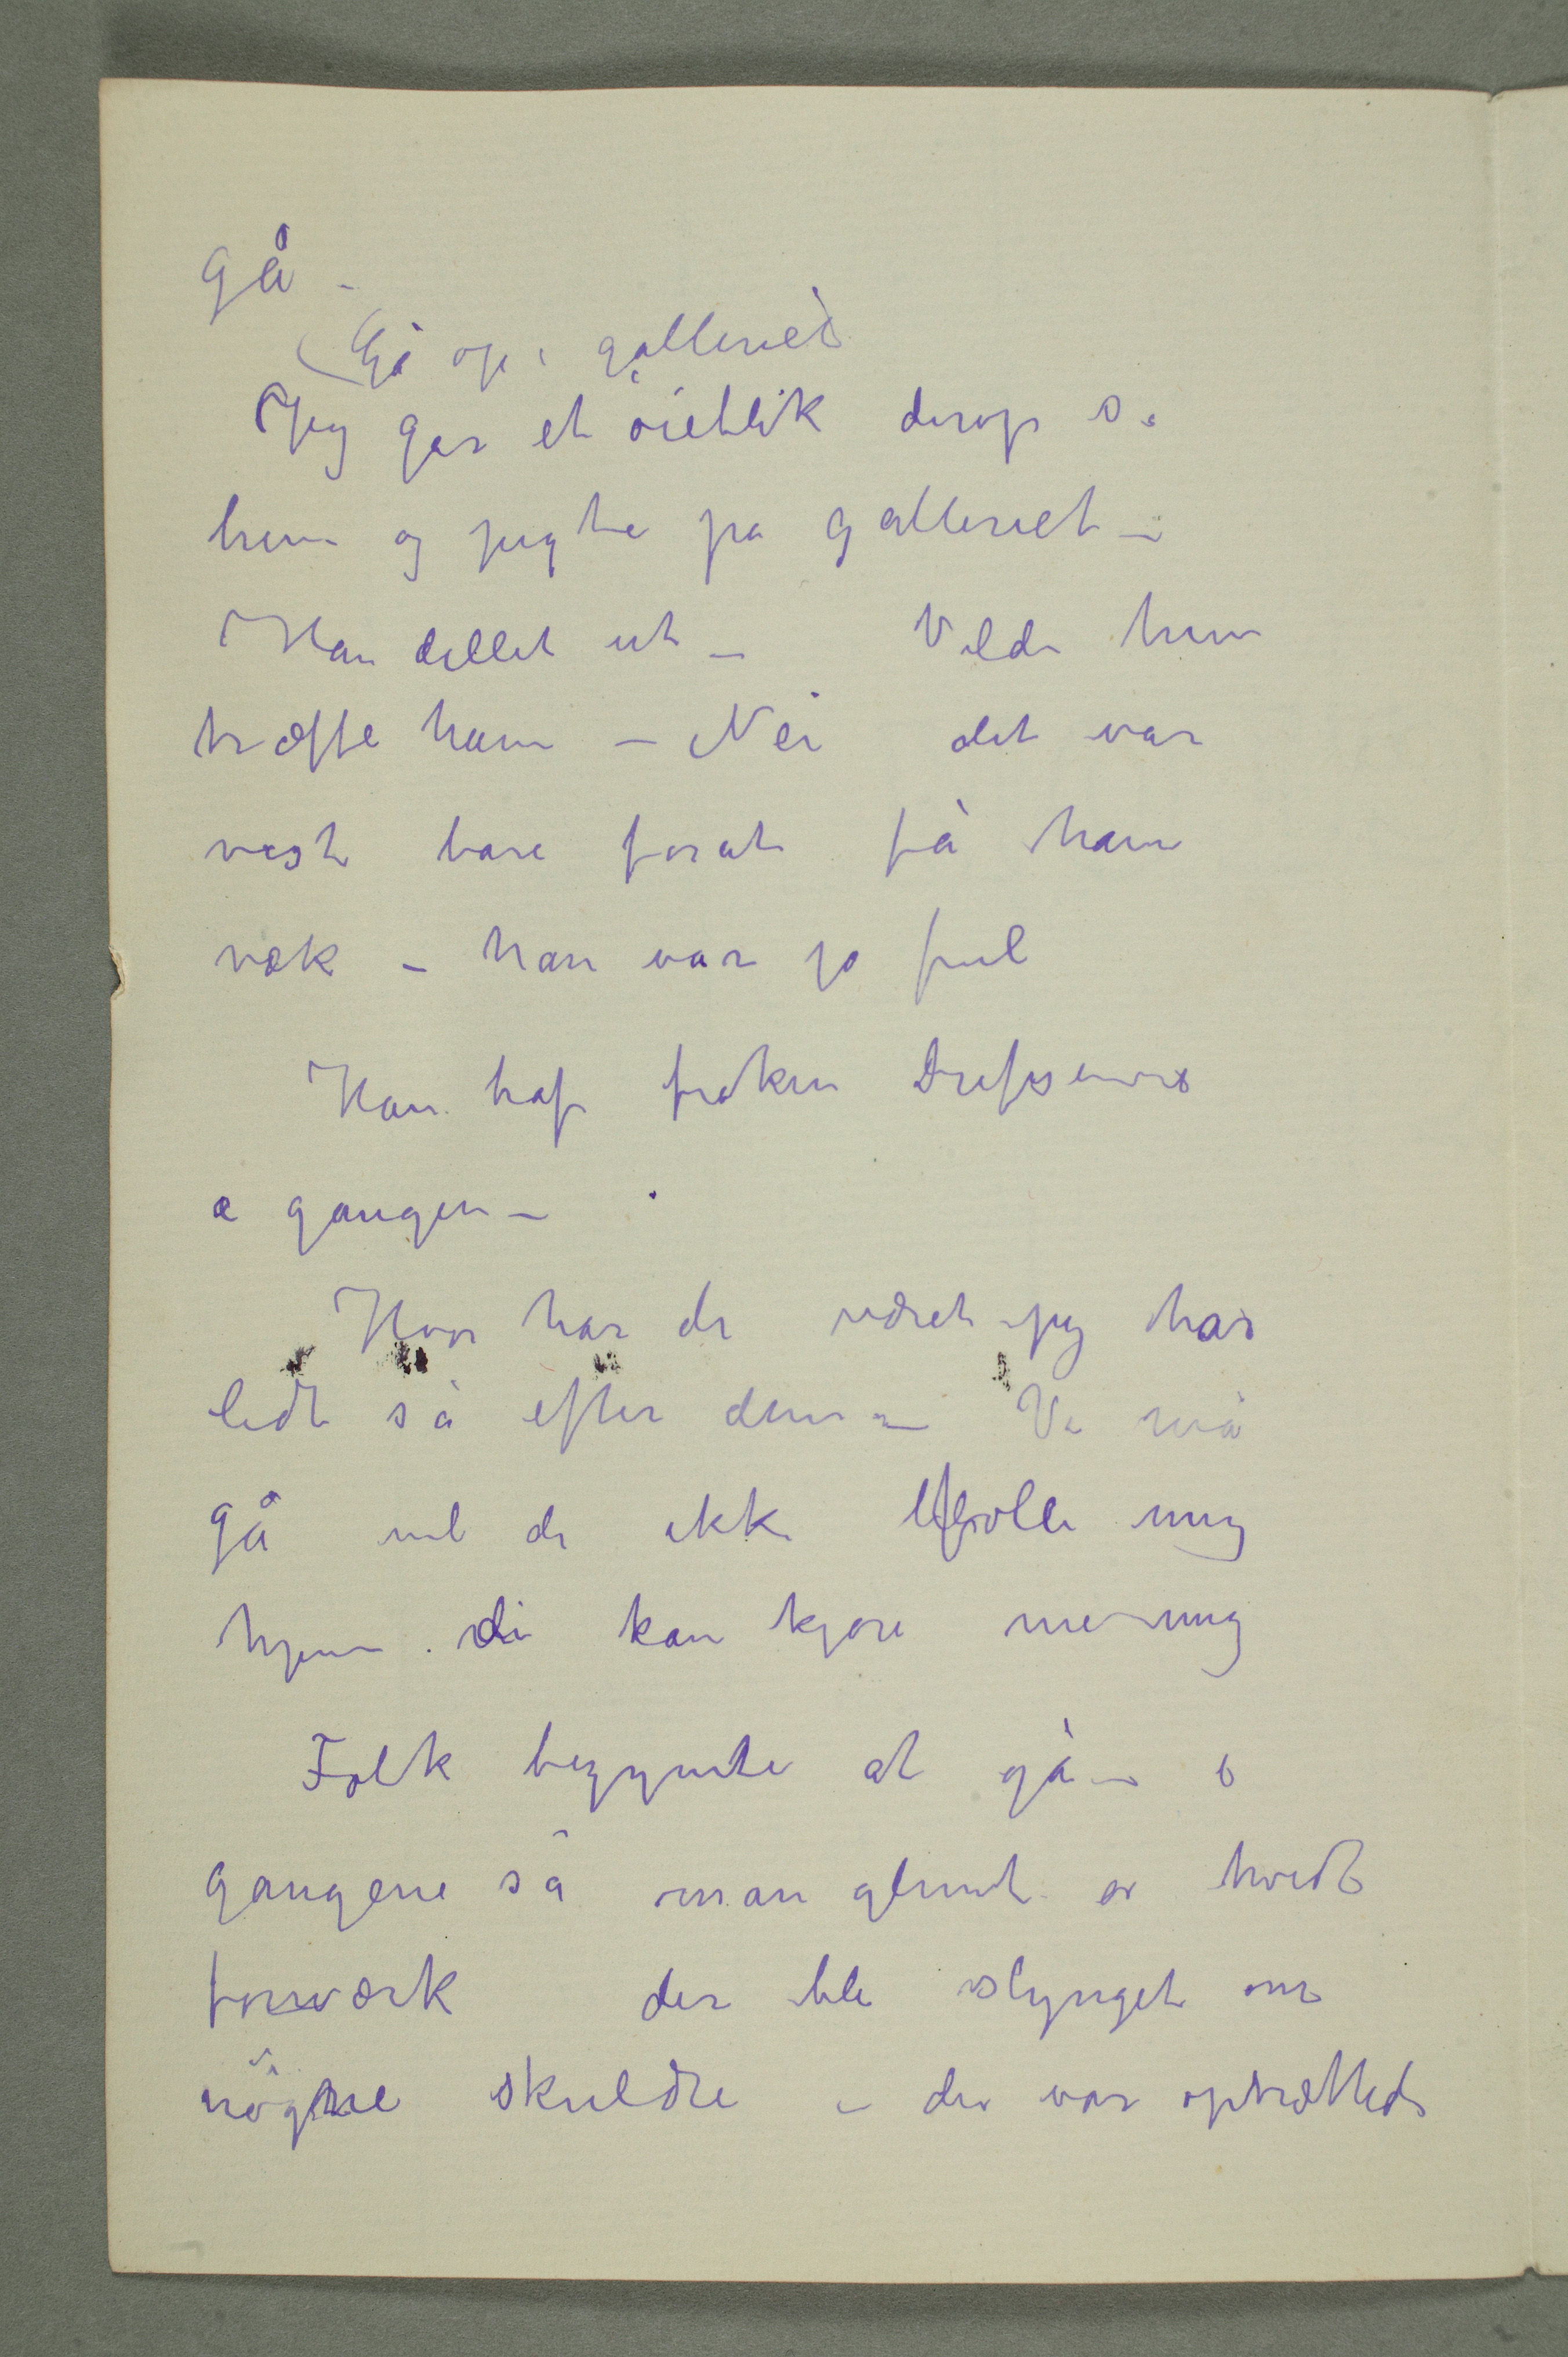 gå –
Gå op i galleriet
Jeg går et öieblik derop sa
hun og pegte på galleriet –
Han dillet ut – Vilde hun
træffe ham – Nei det var
vist bare forat få ham
væk – han var jo ful
Han traf frøken
i gangen –
Hvor har de været – jeg har
ledt så efter dem – Vi må
gå vil de ikke følle mig
hjem. di kan kjøre me mig
Folk begynte at gå – i
gangene så man glimt av hvidt
der ble slynget om
nögne skuldre – der var optrættede